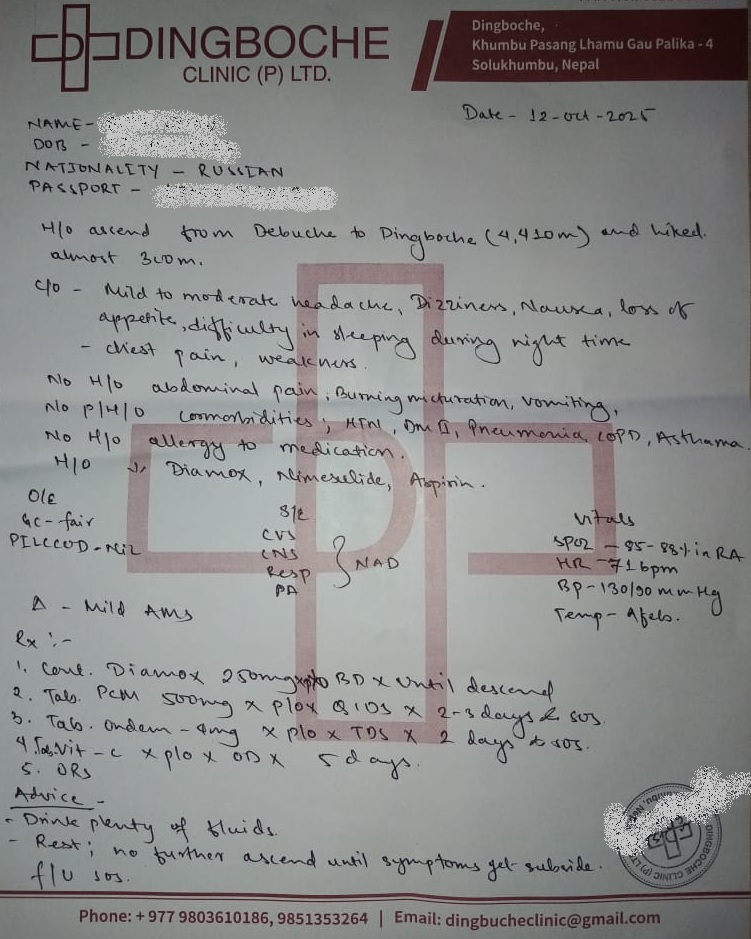 DINGBOCHE
CLINIC (P) LTD.
Dingboche,
Khumbu Pasang Lhamu Gau Palika - 4
Solukhumbu, Nepal
Date - 12-oct-2025
NAME-
DOB -
NATIONALITY - RUSSIAN
PASSPORT -
H/o ascend from Debuche to Dingboche (4,410m) and hiked.
almost 300m.
c/o - Mild to moderate headache, Dizziness, Nausea, loss of
appetite, difficulty in sleeping during night time
- chest pain, weakness.
No H/o abdominal pain, Burning micturation, vomiting,
No P/H/O commorbidities, HTN, Dm II, Pneumonia, COPD, Asthama.
No H/o allergy to medication.
H/O Diamox, Nimesulide, Aspirin.
O/E
GC-fair
PILCCOD-Nil
S/E
CVS
CNS
Resp
PA
NAD
Vitals
SPO2 - 85-88% in RA
HR - 71 bpm
BP - 130/90 mmHg
Temp - Afeb.
Δ - Mild AMS
Rx :-
1. Cont. Diamox 250mg BD x until descend
2. Tab. PCM 500mg x p/o x QIDS x 2-3 days & sos.
3. Tab. ondem - 4mg x p/o x TDS x 2 days & sos.
4. Tab. Vit - c x p/o x OD x 5 days.
5. ORS
Advice -
- Drink plenty of fluids.
- Rest; no further ascend until symptoms get subside.
f/u sos.
DINGBOCHE CLINIC (P) LT
Phone: +977 9803610186, 9851353264 | Email: dingbucheclinic@gmail.com